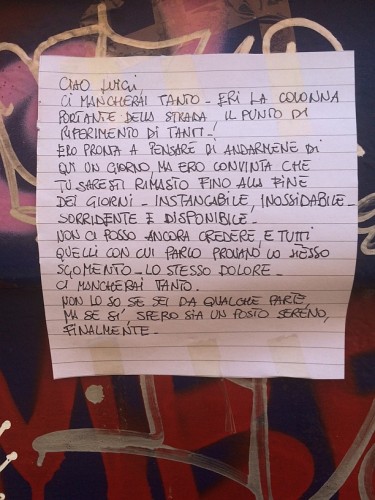 CIAO LUIGI,
CI MANCHERAI TANTO - ERI LA COLONNA
PORTANTE DELLA STRADA, IL PUNTO DI
RIFERIMENTO DI TANTI -!
ERO PRONTA A PENSARE DI ANDARMENE DI
QUI UN GIORNO, MA ERO CONVINTA CHE
TU SARESTI RIMASTO FINO ALLA FINE
DEI GIORNI - INSTANCABILE, INOSSIDABILE -
SORRIDENTE E DISPONIBILE -
NON CI POSSO ANCORA CREDERE, E TUTTI
QUELLI CON CUI PARLO PROVANO LO STESSO
SGOMENTO - LO STESSO DOLORE -
CI MANCHERAI TANTO -
NON LO SO SE SEI DA QUALCHE PARTE,
MA SE SI', SPERO SIA UN POSTO SERENO,
FINALMENTE -